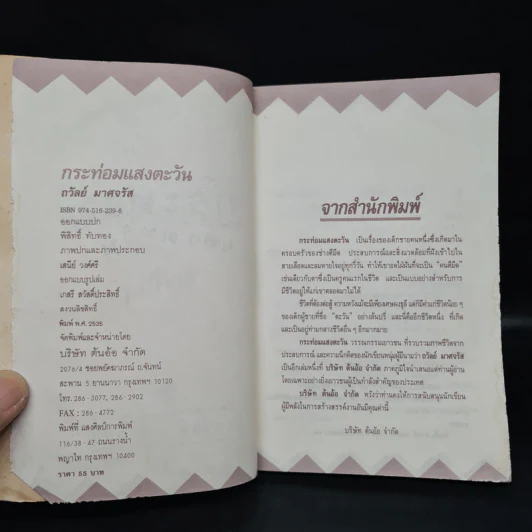 กระท่อมแสงตะวัน
ถวัลย์ มาศจรัส
ISBN 974-516-239-6
ออกแบบปก
พิสิทธิ์ ทับทอง
ภาพปกและภาพประกอบ
เสนีย์ วงศ์ศรี
ออกแบบรูปเล่ม
เกสรี สวัสดิ์ประสิทธิ์
สงวนลิขสิทธิ์
พิมพ์ พ.ศ. 2535
จัดพิมพ์และจำหน่ายโดย
บริษัท ต้นอ้อ จำกัด
2076/4 ซอยพยัตธาภรณ์ ถ.จันทน์
สะพาน 5 ยานนาวา กรุงเทพฯ 10120
โทร. 286-3077, 286-2902
FAX : 286-4772
พิมพ์ที่ แสงศิลป์การพิมพ์
116/38-47 ถนนรางน้ำ
พญาไท กรุงเทพฯ 10400
ราคา 55 บาท
จากสำนักพิมพ์
กระท่อมแสงตะวัน เป็นเรื่องของเด็กชายคนหนึ่งซึ่งเกิดมาใน
ครอบครัวของช่างตีมีด ประสบการณ์และสิ่งแวดล้อมที่ฝังเข้าไปใน
สายเลือดและลมหายใจอยู่ทุกวี่วัน ทำให้เขาอดใฝ่ฝันที่จะเป็น "คนตีมีด"
เช่นเดียวกับตาซึ่งเป็นครูคนแรกในชีวิต และเป็นแบบอย่างสำหรับการ
มีชีวิตอยู่ให้แก่เขาตลอดมาไม่ได้
ชีวิตที่ต้องต่อสู้ ความหวังแม้จะมีเพียงเศษธุลี แต่ก็มีค่าแก่ชีวิตน้อย ๆ
ของเด็กผู้ชายที่ชื่อ "ตะวัน" อย่างล้นปรี่ และนี่คืออีกชีวิตหนึ่ง ที่เกิด
และเป็นอยู่ท่ามกลางชีวิตอื่น ๆ อีกมากมาย
กระท่อมแสงตะวัน วรรณกรรมเยาวชน ที่รวบรวมภาพชีวิตจาก
ประสบการณ์ และความนึกคิดของนักเขียนหนุ่มผู้มีนามว่า ถวัลย์ มาศจรัส
เป็นอีกเล่มหนึ่งที่ บริษัท ต้นอ้อ จำกัด ภาคภูมิใจนำเสนอแด่ท่านผู้อ่าน
โดยเฉพาะอย่างยิ่งเยาวชนผู้เป็นกำลังสำคัญของประเทศ
บริษัท ต้นอ้อ จำกัด หวังว่าท่านคงให้การสนับสนุนนักเขียน
ผู้มีพลังในการสร้างสรรค์งานอันมีคุณค่านี้
บริษัท ต้นอ้อ จำกัด